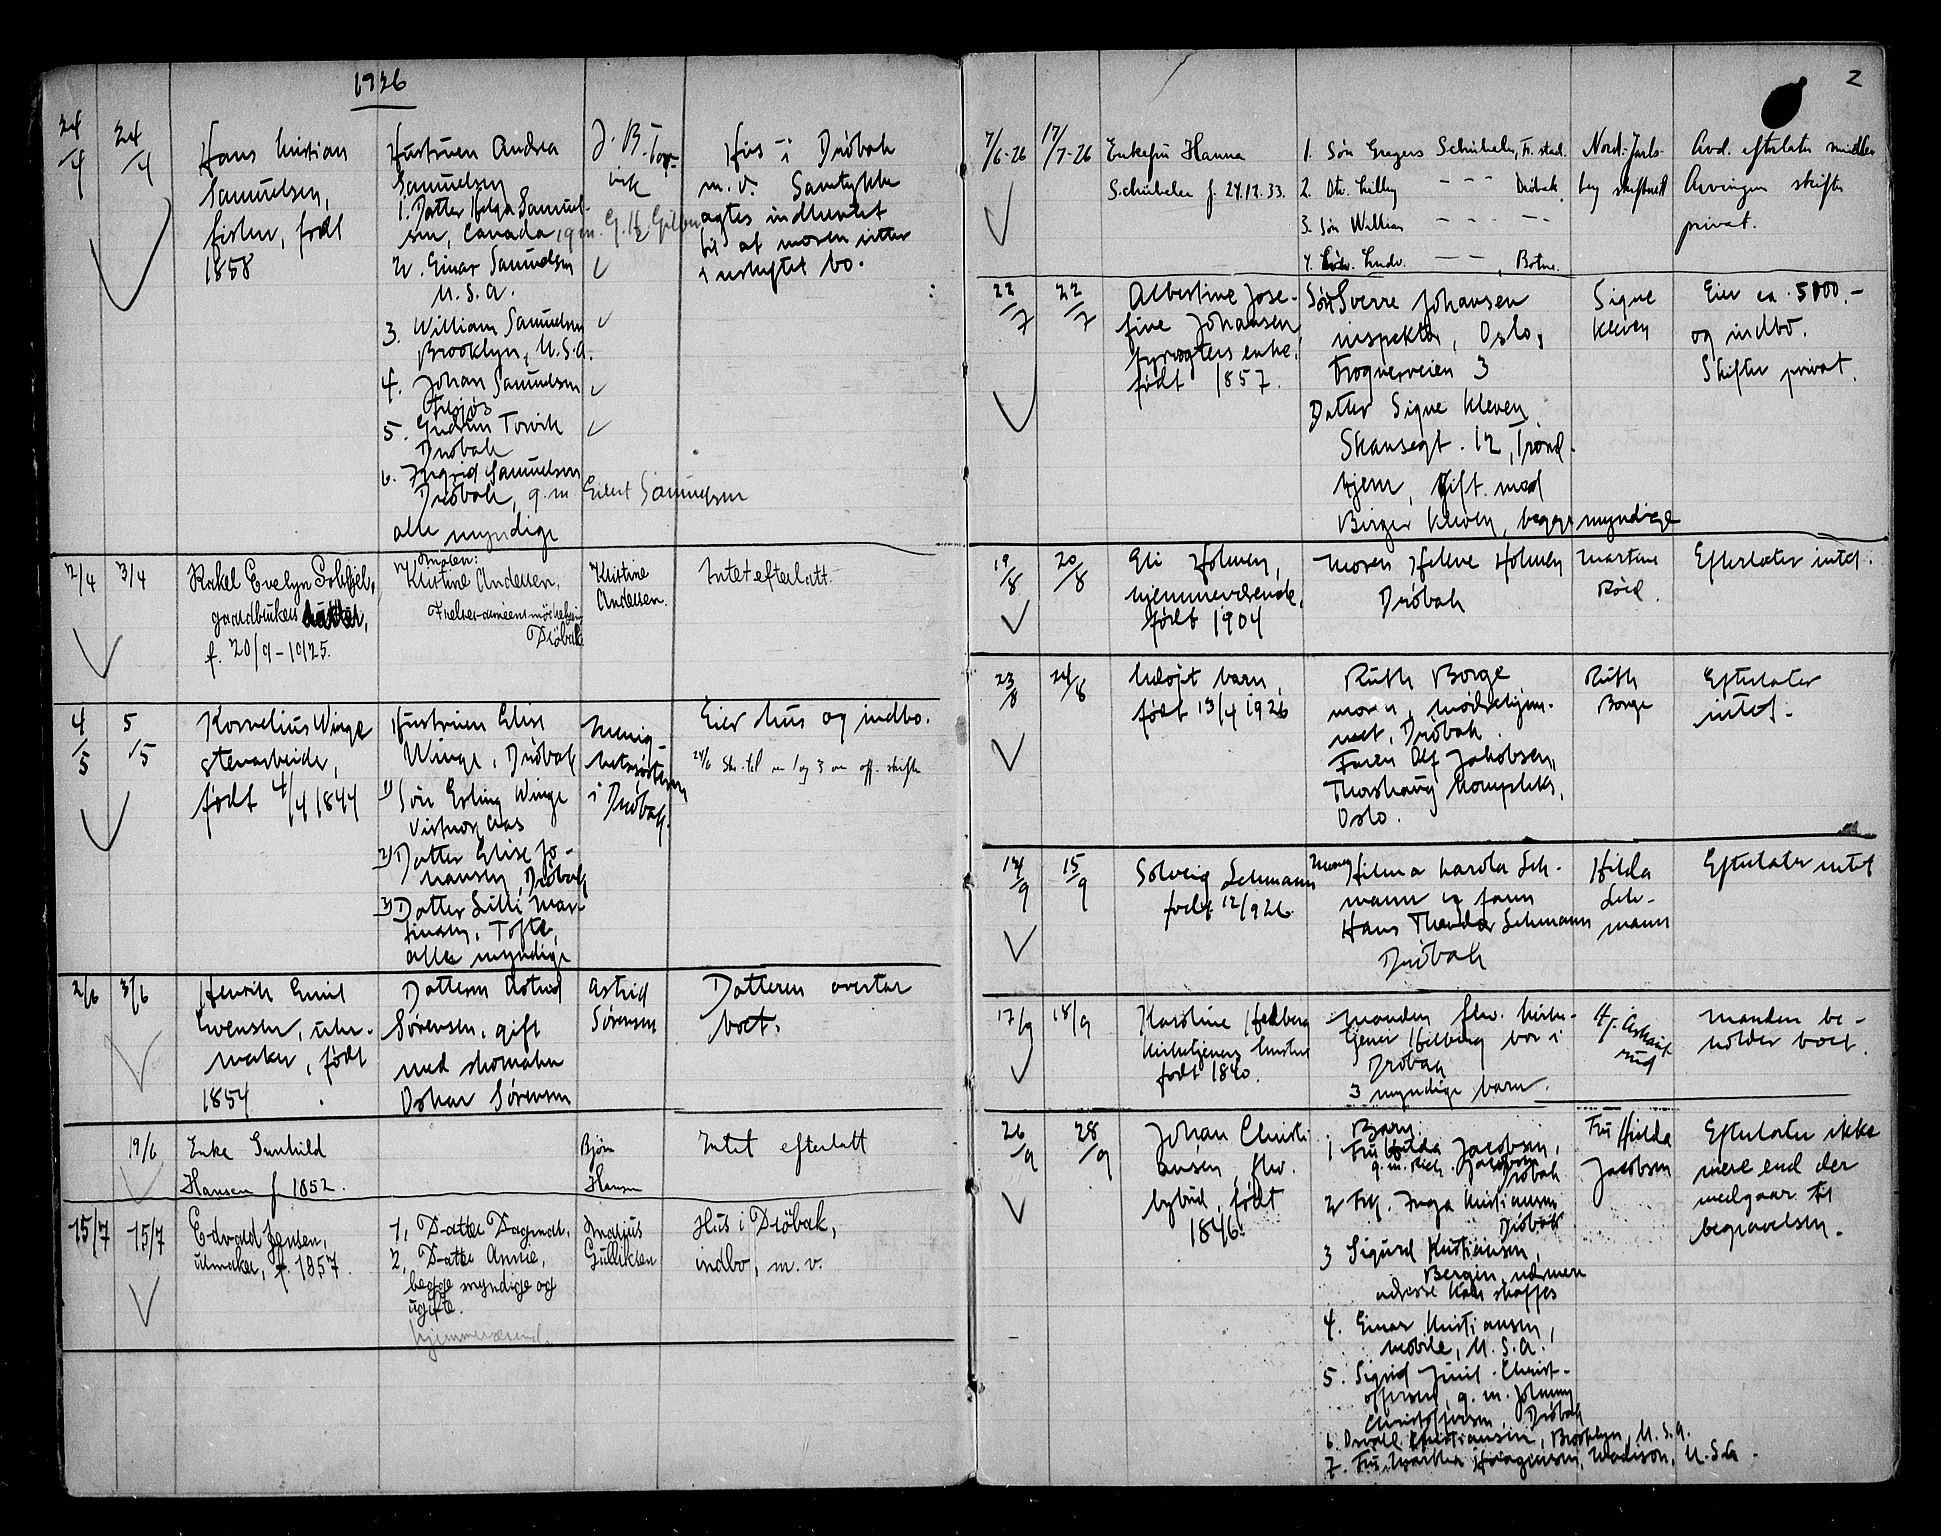 1926
24/4 24/4 Hans Kristian
Samuelsen,
fisker, født
1858
Hustruen Andrea
Samuelsen
1. Datter Helga Samuel-
sen, Canada, g.m. G. H.
2. Einar Samuelsen
U.S.A.
3. William Samuelsen
Brooklyn, U.S.A.
4. Johan Samuelsen
5. Gudrun Torvik
Drøbak
6. Ingrid Samuelsen
Drøbak, g.m. Samuelsen
alle myndige
J. B. Tor-
vik
Hus i Drøbak
m.v. Samtykke
agtes indhentet
til at moren sitter
i uskiftet bo.
2/4 3/4 Rakel Evelyn
gaardbrukers datter,
f. 20/9-1925.
Kristine Andersen,
Drøbak
Kristine
Andersen.
Intet efterlatt.
4/5 5/5 Kornelius Winge
stenarbeider,
født 4/4 1844
Hustruen Elise
Winge, Drøbak
1) Søn Erling Winge
Aas
2) Datter Elise Jo-
hansen, Drøbak
3) Datter Lilli Mar-
tinsen, Tofte,
alle myndige
Menig-
hetssøsteren
i Drøbak.
Eier hus og indbo.
2/6 3/6 Henrik Emil
Evensen, uhr-
maker, født
1854
Datteren Astrid
Sørensen, gift
med skomaker
Oskar Sørensen
Astrid
Sørensen
Datteren overtar
boet.
19/6 Enke Gunhild
Hansen f. 1852.
Bjørn
Hansen
Intet efterlatt
15/7 15/7 Edvard Jensen,
urmaker, f. 1857.
1, Datter Dagmar,
2, Datter Annie,
begge myndige og
ugifte.
hjemmeværende
Marius
Gulliksen
Hus i Drøbak,
indbo, m.v.
2
7/6-26 17/7-26 Enkefru Hanna
Schübeler f. 24.12.33.
1. Søn Gregers Schübeler, Fr.stad.
2. Dtr. Lilley - - - Drøbak
3. Søn William - - - - -
4. Ludv. - - , Botne.
Nord-Jarls-
berg skifterett
Avd. efterlater midler
Arvingene skifter
privat.
22/7 22/7 Albertine Jose-
fine Johansen
fyrvogters enke.
født 1857.
Søn Sverre Johansen
inspektør, Oslo,
Frognerveien 3
Datter Signe Kleven
Skansegt. 12, Trond-
hjem, gift med
Birger Kleven, begge myndige
Signe
Kleven
Eier ca. 5000,-
og indbo.
Skifter privat.
19/8 20/8 Eli Holmen,
hjemmeværende,
født 1904
Moren Helene Holmen
Drøbak
Martine
Røed.
Efterlater intet.
23/8 24/8 Udøpt barn,
født 13/4 1926
Ruth Borge
moren, mødrehjem-
met, Drøbak.
Faren Olf Jakobsen,
Thorshaug kompleks,
Oslo.
Ruth
Borge
Efterlater
intet.
14/9 15/9 Solveig Lehmann
født 12/9 26.
Moren Hilma Karola Leh-
mann og faren
Hans Theodor Lehmann
Drøbak
Hilda
Leh-
mann
Efterlater intet
17/9 18/9 Karoline Helberg
kirketjeners hustru
født 1840.
Manden fhv. kirke-
tjener Helberg bor i
Drøbak
3 myndige barn.
Manden be-
holder boet.
26/9 28/9 Johan Christi-
ansen, fhv.
bybud, født
1846.
Barn:
1. Fru Hilda Jacobsen,
g.m. Rich. Jacobsen
Drøbak
2 Frk. Inga Kristiansen
Drøbak
3 Sigurd Kristiansen,
Bergen, nærmere
adresse kan skaffes
4. Einar Kristiansen,
Mobile, U.S.A.
5. Sigrid Christ-
offersen, g.m. Johnny
Christoffersen, Drøbak
6. Christiansen, Brooklyn, U.S.A.
7. Fru Martha Madison, U.S.A.
Fru Hilda
Jacobsen
Efterlater ikke
mere end der
medgaar til
begravelsen.